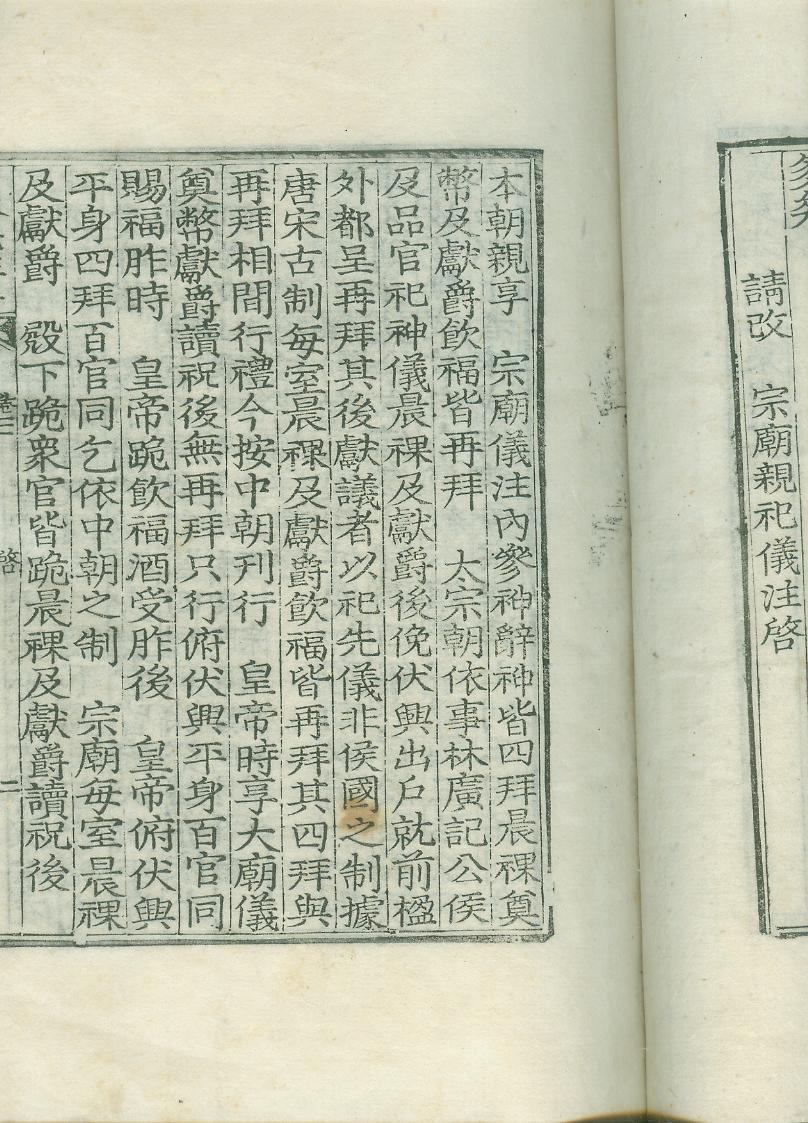 請改　宗廟親祀儀注啓
本朝親享　宗廟儀注內參神辭神皆四拜晨祼奠
幣及獻爵飮福皆再拜　太宗朝依事林廣記公侯
及品官祀神儀晨祼及獻爵後俛伏興出戶就前楹
外都呈再拜其後獻議者以祀先儀非侯國之制據
唐宋古制每室晨祼及獻爵飮福皆再拜其四拜與
再拜相間行禮今按中朝刊行　皇帝時享大廟儀
奠幣獻爵讀祝後無再拜只行俯伏興平身百官同
賜福胙時　皇帝跪飮福酒受胙後　皇帝俯伏興
平身四拜百官同乞依中朝之制　宗廟每室晨祼
及獻爵　殿下跪衆官皆跪晨祼及獻爵讀祝後
卷二　啓　二